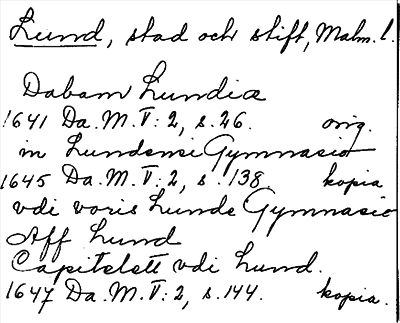 Lund, stad och stift, Malm. l.
Dabam Lundia
1641 Da. M. V: 2, s. 26. orig.
in Lundensi Gymnasio
1645 Da. M. V: 2, s. 138 kopia
vdi voris Lunde Gymnasio
Aff Lund
Capitelett vdi Lund.
1647 Da. M. V: 2, s. 144. kopia.